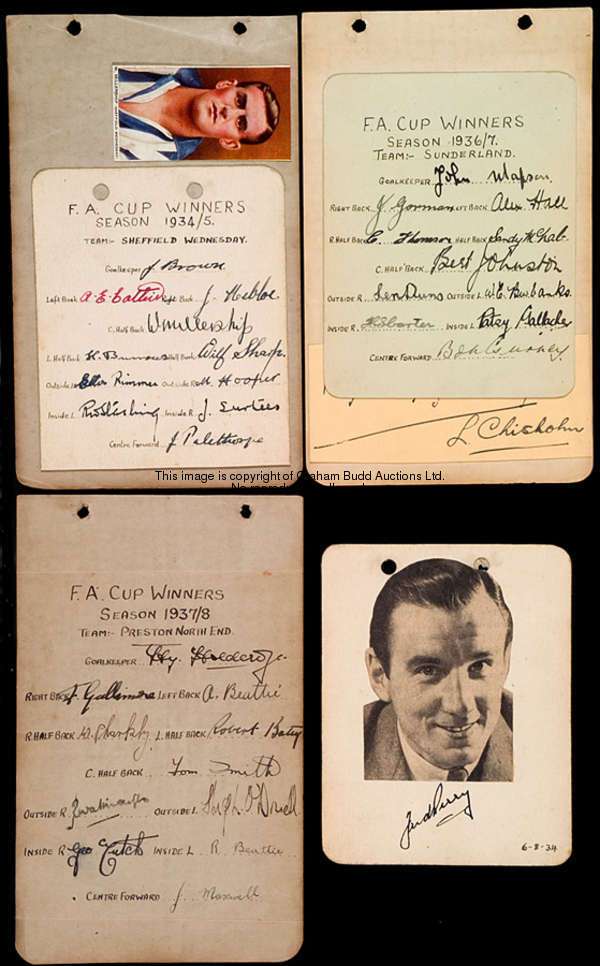 F.A. CUP WINNERS
SEASON 1934/5.
TEAM:- SHEFFIELD WEDNESDAY.
Goalkeeper J. Brown
Left Back A. E. Catlin Right Back J. Nibloe
C. Half Back W Millership
L Half Back H. Burrows Half Back Wilf Sharp.
Outside L Ellis Rimmer Outside R M. Hooper
Inside L R W Starling Inside R. J. Surtees
Centre Forward J Palethorpe
F.A. CUP WINNERS
SEASON 1936/7.
TEAM:- SUNDERLAND.
GOALKEEPER John Mapson
RIGHT BACK J. Gorman LEFT BACK Alex Hall
R. HALF BACK C. Thomson HALF BACK Sandy McNab.
C. HALF BACK Bert Johnston
OUTSIDE R. Len Duns OUTSIDE L. W.E. Burbanks.
INSIDE R. H S Carter INSIDE L Patsy Gallacher
CENTRE FORWARD Bob Gurney
L. Chisholm
This image is copyright of Graham Budd Auctions Ltd.
F.A. CUP WINNERS
SEASON 1937/8
TEAM:- PRESTON NORTH END.
GOALKEEPER Hy. Holdcroft.
RIGHT BACK F. Gallimore LEFT BACK A. Beattie
R HALF BACK W. Shankly L. HALF BACK Robert Batey
C. HALF BACK Tom Smith
OUTSIDE R OUTSIDE L. Hugh O'Donnell
INSIDE R. Geo Mutch INSIDE L R. Beattie
CENTRE FORWARD J. Maxwell
Fred Perry
6-8-34